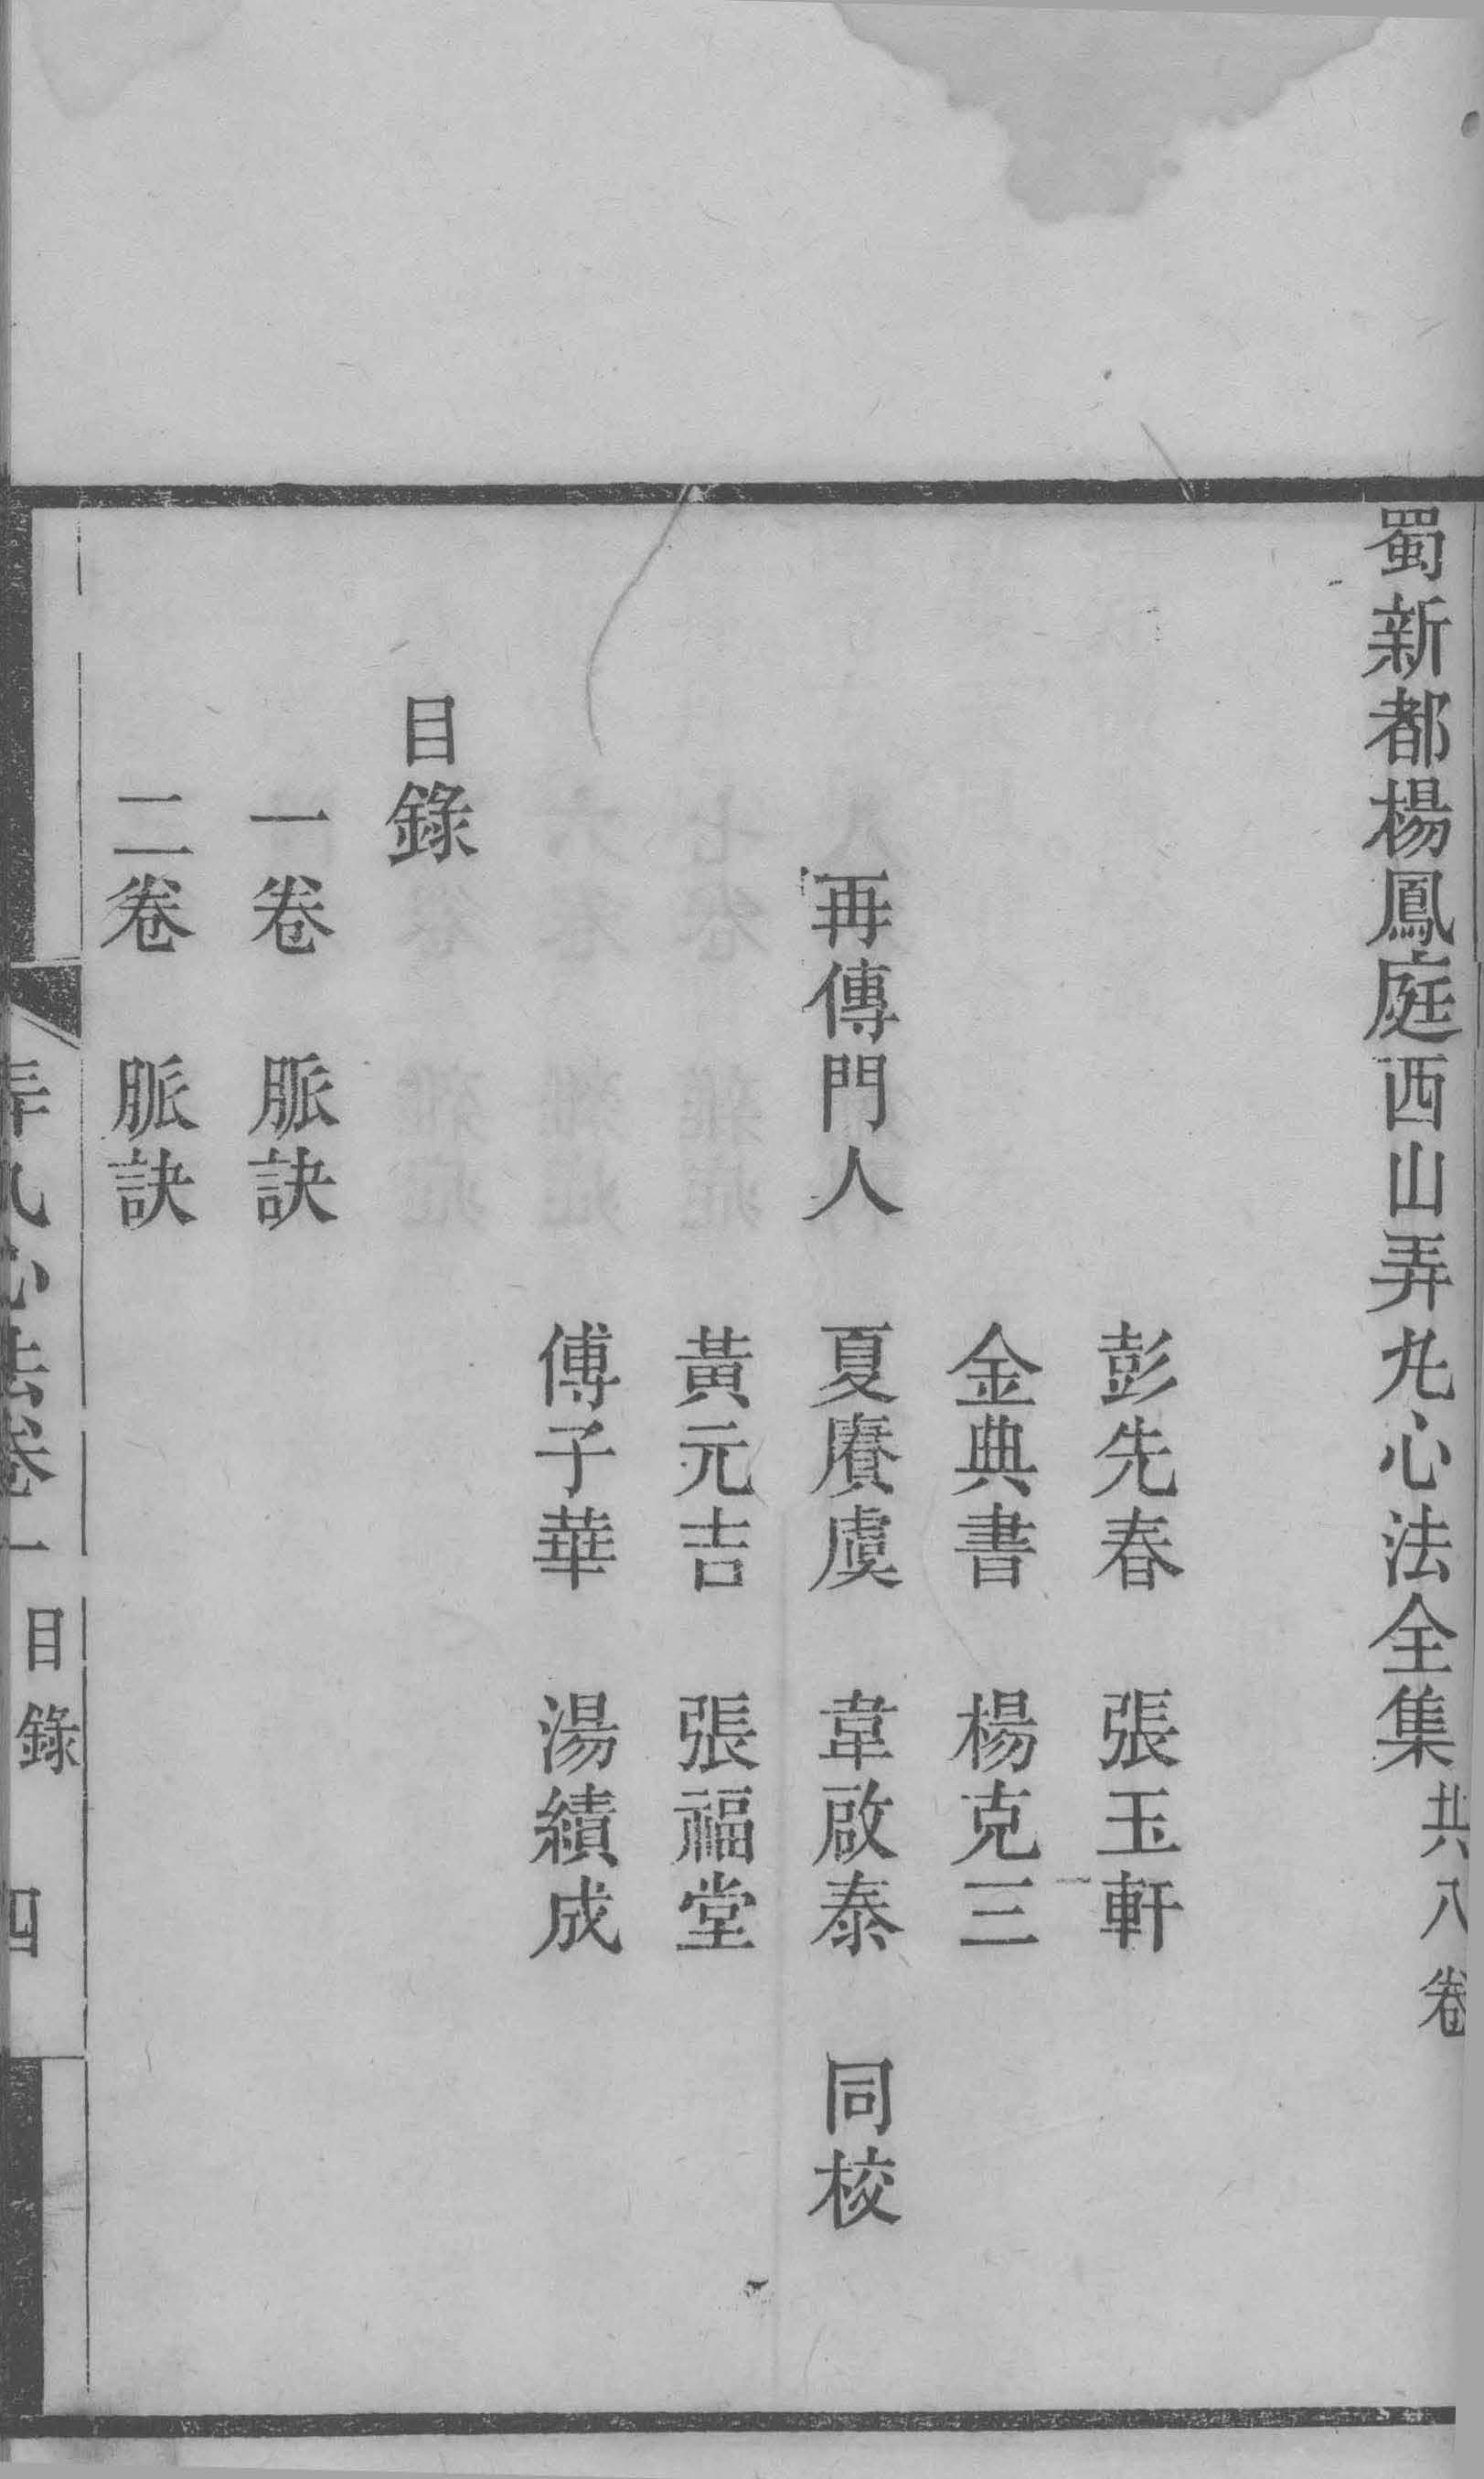 蜀新都楊鳳庭西山弄丸心法全集共八卷
彭先春　張玉軒
金典書　楊克三
再傳門人　夏賡虞　韋啟泰　同校
黃元吉　張福堂
傅子華　湯績成
目錄
一卷　脈訣
二卷　脈訣
弄丸心法卷一　目錄　四